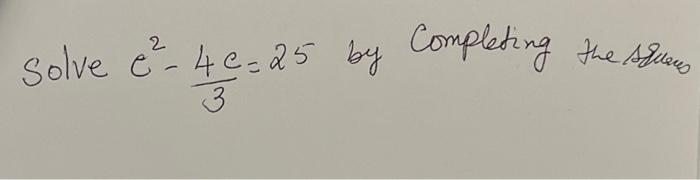 Solve c² - 4c/3 = 25 by Completing the